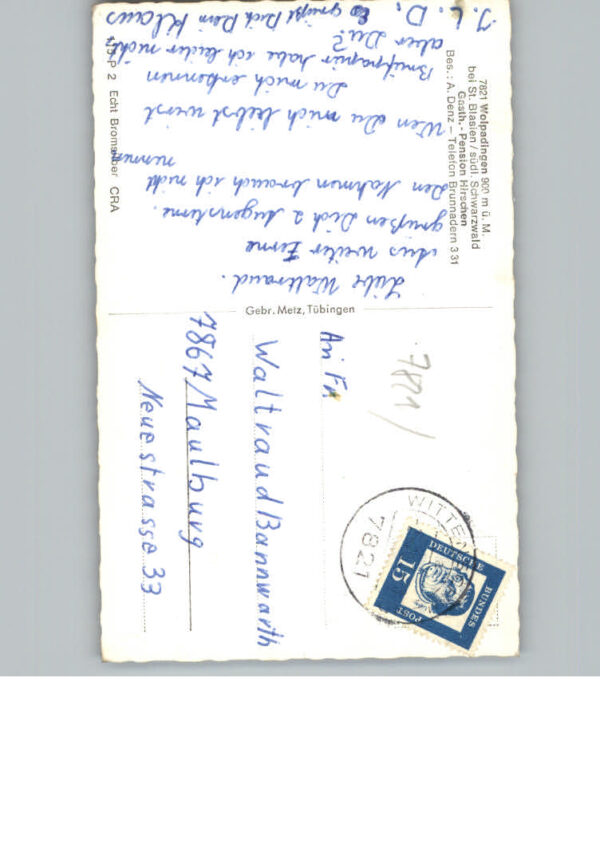 7821 Wolpadingen 900 m ü. M.
bei St. Blasien / südl. Schwarzwald
Gasth.- Pension Hirschen
Bes.: A. Denz – Telefon Brunnadern 331
Liebe Waltraud.
Aus weiter Ferne
grüßen Dich 2 Augensterne.
Den Nahmen brauch ich nicht
nennen
Wen Du mich liebst wirst
Du mich erkennen
Briefpapier habe ich leider nicht
aber Du?
I. L. D. Es grüßt Dich Dein Klaus
P 2 Echt Bromsilber CRA
Gebr. Metz, Tübingen
7821/
An Frl.
Waltraud Bannwarth
7867 Maulburg
Neuestrasse 33
WITTE
7821
DEUTSCHE BUNDES POST
15